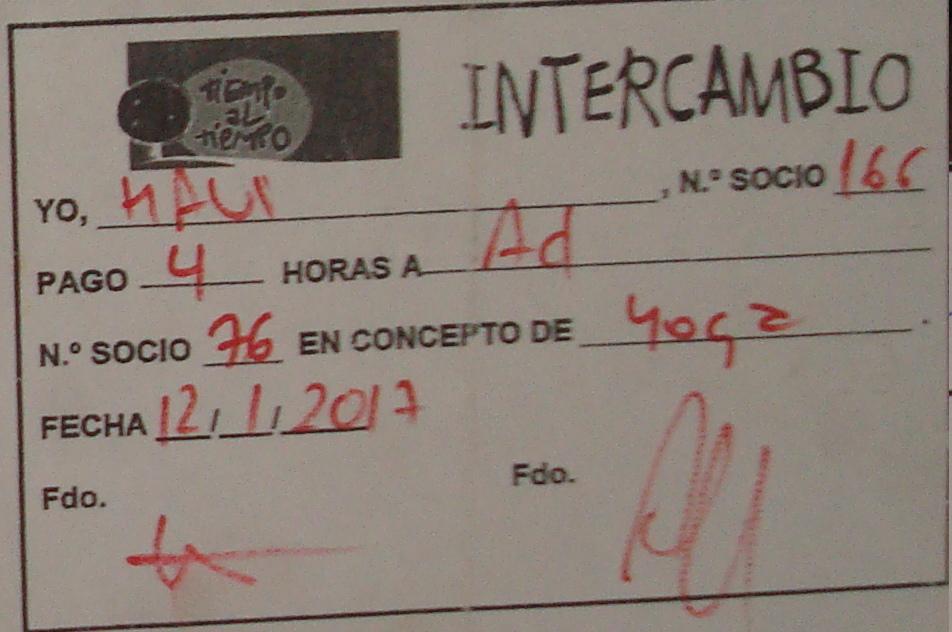 TIEMPO
AL
TIEMPO
INTERCAMBIO
YO, MAVI, N.º SOCIO 166
PAGO 4 HORAS A Ad
N.º SOCIO 76 EN CONCEPTO DE Yoga.
FECHA 12/1/2017
Fdo. Fdo.